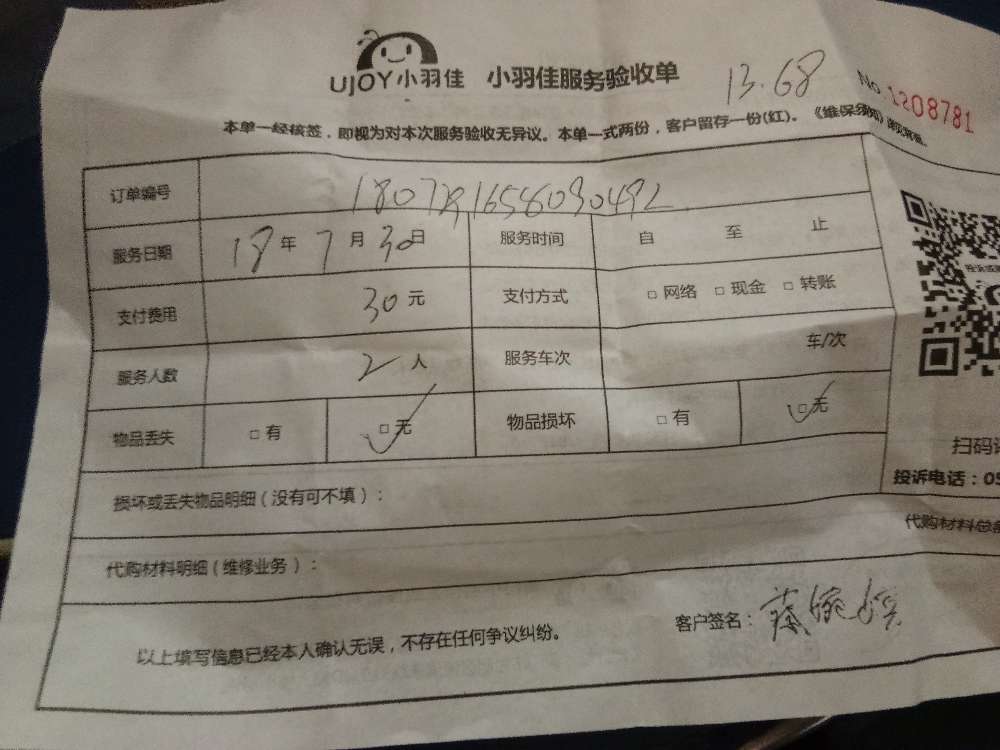 UJOY小羽佳 小羽佳服务验收单 13.68 No.1208781
本单一经核签，即视为对本次服务验收无异议。本单一式两份，客户留存一份(红)。《维保须知》
订单编号
服务日期 18年7月30日 服务时间 自 至 止
支付费用 30元 支付方式 □网络 □现金 □转账
服务人数 2人 服务车次 车/次
物品丢失 □有 □无 物品损坏 □有 □无
扫码
投诉电话：05
损坏或丢失物品明细（没有可不填）：
代购材料总
代购材料明细（维修业务）：
客户签名：
以上填写信息已经本人确认无误，不存在任何争议纠纷。